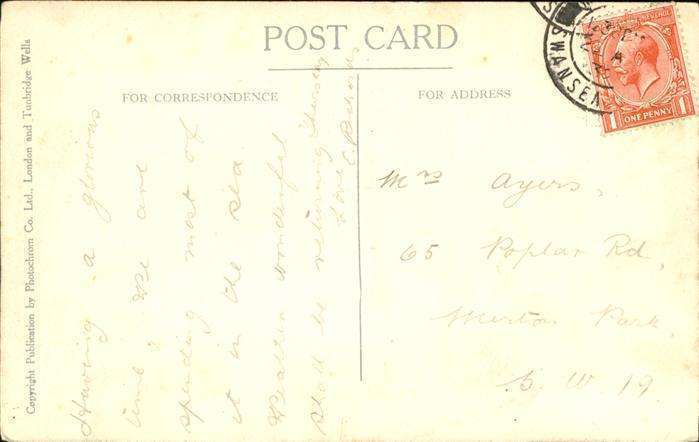 POST CARD
FOR CORRESPONDENCE
Having a glorious
time, we are
spending most of
it in the sea
Weather wonderful
Shall be returning Thursday
Love C
FOR ADDRESS
Mrs Ayers,
65 Poplar Rd,
Merton Park,
S. W. 19.
SWANSEA
1 ONE PENNY 1
Copyright Publication by Photochrom Co. Ltd., London and Tunbridge Wells